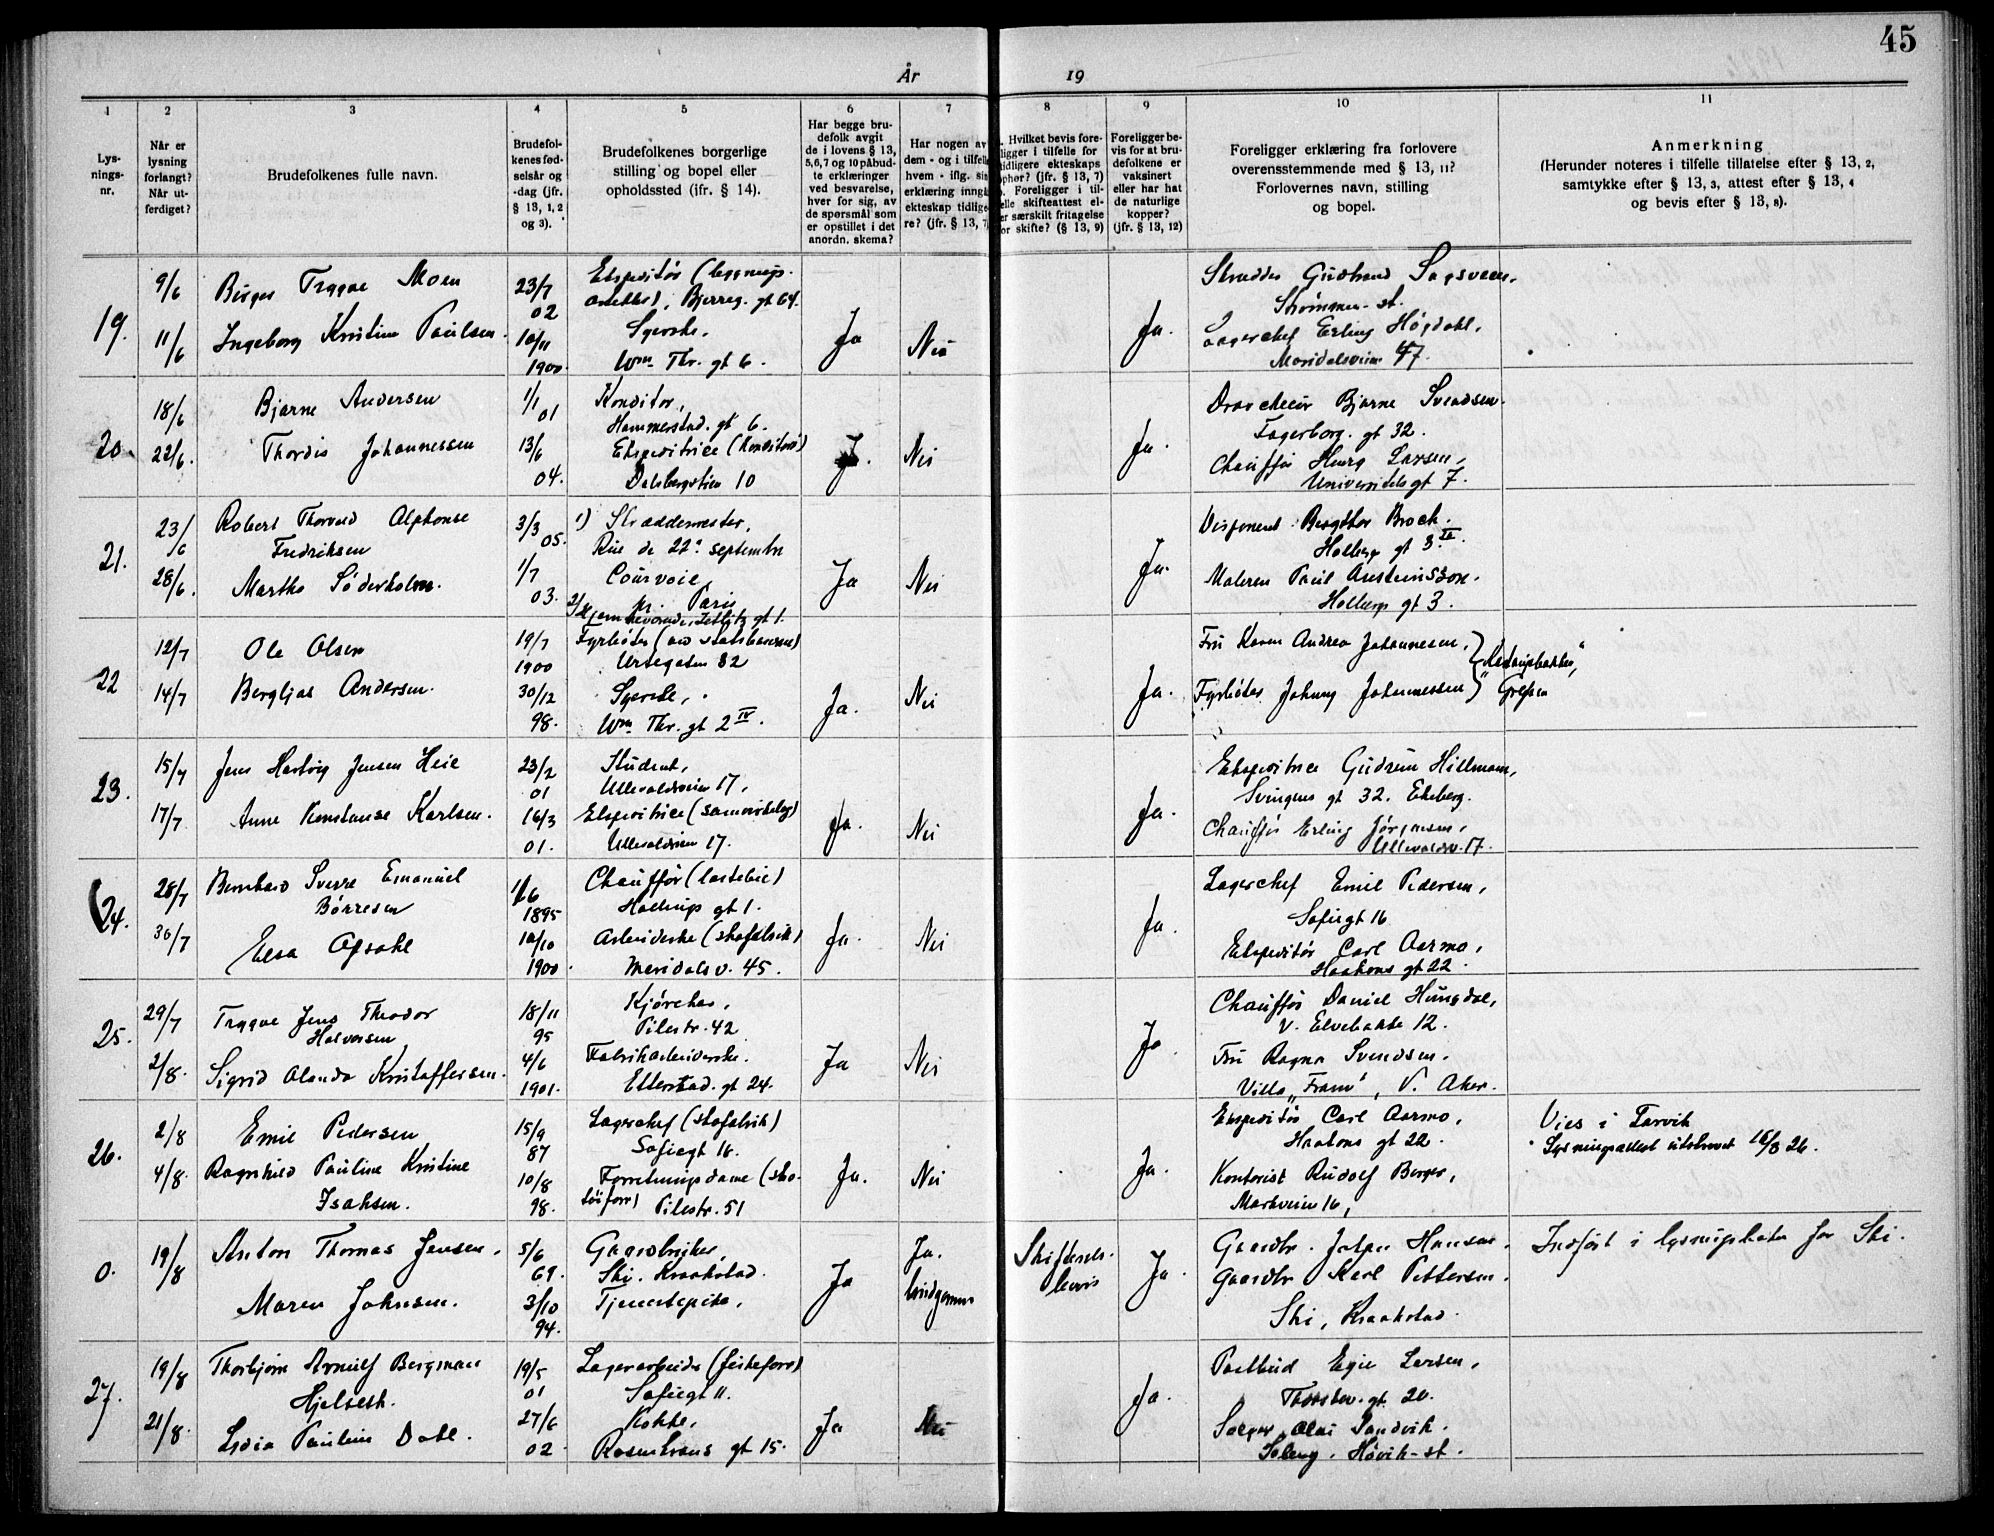 45
År 19
1 2 3 4 5 6 7 8 9 10 11
Lys-
nings-
nr.
Når er
lysning
forlangt?
Når ut-
ferdiget?
Brudefolkenes fulle navn.
Brudefol-
kenes fød-
selsår og
-dag (jfr.
§ 13, 1, 2
og 3).
Brudefolkenes borgerlige
stilling og bopel eller
opholdssted (ifr. § 14).
Har begge bru-
defolk avgit
de i lovens § 13,
5,6,7 og 10 påbud-
te erklæringer
ved besvarelse,
hver for sig, av
de spørsmål som
er opstillet i det
anordn. skema?
Har nogen av
dem - og i tilfelle
hvem - iflg. sin
erklæring inngå
ekteskap tidlige-
re? (jfr. § 13, 7)
Hvilket bevis fore-
ligger i tilfelle for
tidligere ekteskaps
ophør? (jfr. § 13, 7)
Foreligger i til-
elle skifteattest el-
er særskilt fritagelse
or skifte? (§ 13, 9)
Foreligger be-
vis for at bru-
defolkene er
vaksinert
eller har hat
de naturlige
kopper?
(jfr. § 13, 12)
Foreligger erklæring fra forlovere
overensstemmende med § 13, 11?
Forlovernes navn, stilling
og bopel.
Anmerkning
(Herunder noteres i tilfelle tillatelse efter § 13, 2,
samtykke efter § 13, 3, attest efter § 13, 4
og bevis efter § 13, 8).
19.
9/6
11/6
Birger Trygve Moen
Ingeborg Kristine Paulsen.
23/7
02
10/11
1900.
Ekspeditør
Bjerreg. gt 64.
Syerske,
Wm. Thr. gt 6.
Ja
Nei
Ja.
Skrædder Gudbrand Sagsveen,
Strømmen st.
Lagerchef Erling Høgdahl,
Maridalsveien 47.
20.
18/6
22/6.
Bjarne Andersen
Thordis Johannessen
1/1
01
13/6
04.
Konditor,
Hammerstad. gt 6.
Ekspeditrice (Konditori)
Dalsbergstien 10
Ja.
Nei
Ja.
Bjarne Svendsen.
Fagerborg. gt 32.
Chauffør Larsen,
Universitetsgt 7.
21.
23/6
28/6.
Robert Thorvald Alphonse
Fredriksen
Martha Söderholm.
3/3
05.
1/7
03.
1) Skræddermester,
Rue de 22e septembre
Courvoie,
pr. Paris
2) Hjemmeværende, Zetlitz gt 1.
Ja
Nei
Ja.
Disponent Bergthor Broch.
Holberg gt 3 IV.
Maleren Paul
Holbergs gt 3.
22
12/7
14/7
Ole Olsen
Bergljot Andersen.
19/7
1900
30/12
98.
Fyrbøter (ved statsbanerne)
Urtegaten 32
Syerske,
Wm Thr. gt 2 IV.
Ja.
Nei
Ja.
Fru Karen Andrea Johannesen,
Fyrbøter Johnny Johannessen
Grefsen
23.
15/7
17/7
Jens Hartvig Jensen Heie
Anne Konstanse Karlsen.
23/2
01
16/3
01.
Student,
Ullevaldsveien 17,
Ekspeditrice (samvirkelag)
Ullevaldsveien 17.
Ja.
Nei
Ja.
Ekspeditrice Gudrun Hillmann,
Svingens gt 32. Ekeberg.
Chauffør Erling Jørgensen,
Ullevaldsv. 17.
24.
28/7
30/7
Bernhard Sverre Emanuel
Børresen
Elsa Opsahl
1/6
1895
10/10
1900.
Chauffør (lastebil)
gt 1.
Arbeiderske (skofabrik)
Maridalsv. 45.
Ja.
Nei
Ja.
Lagerchef Emil Pedersen,
Sofiegt 16
Ekspeditør Carl Aarmo,
Haakons gt 22.
25.
29/7
2/8.
Trygve Jens Theodor
Halvorsen
Sigrid Alanda Kristoffersen.
18/11
95
4/6
1901.
Pilestr. 42
Fabrikarbeiderske.
Etterstad. gt 24.
Ja
Nei
Ja
Chauffør Daniel Hungdal,
V. Elvebakke 12.
Fru Ragna Svendsen.
Villa "Fram", V. Aker.
26.
2/8
4/8.
Emil Pedersen
Ragnhild Pauline Kristine
Isaksen.
15/9
87
10/8
98.
Lagerchef (skofabrik)
Sofiegt 16.
Forretningsdame (sko-
tøiforr) Pilestr. 51
Ja.
Nei
Ja.
Ekspeditør Carl Aarmo,
Haakons gt 22.
Kontorist Rudolf Berger,
Markveien 16,
Vies i Larvik
Lysningsattest utskrevet 16/8 26.
0.
19/8
Anton Thomas Jensen,
Maren Johnsen.
5/6
69.
3/10
94.
Gaardbruker,
Ski. Kraakstad.
Tjenestepike,
Ja
Ja.
brudgommen
Skifteretts-
bevis
Ja.
Gaardbr. Hansen.
Gaardbr. Karl Pettersen.
Ski, Kraakstad.
Indført i lysningsboka for Ski.
27.
19/8
21/8.
Thorbjørn Arnulf Bergman
Hjelseth.
Lydia Pauline Dahl.
19/5
01
27/6
02.
Lagerarbeider (fiskeforr)
Sofiegt 11.
Kokke,
Rosenkrans gt 15.
Ja
Nei
Ja.
Postbud Egil Larsen,
gt. 20.
Sandvik.
Høvik-st.